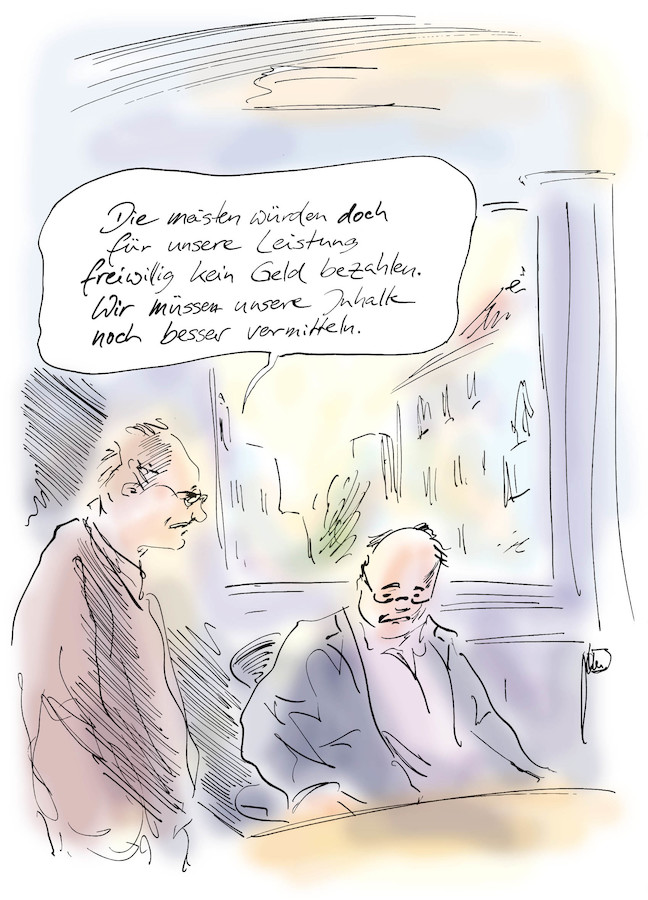 Die meisten würden doch
für unsere Leistung
freiwillig kein Geld bezahlen.
Wir müssen unsere Inhalte
noch besser vermitteln.